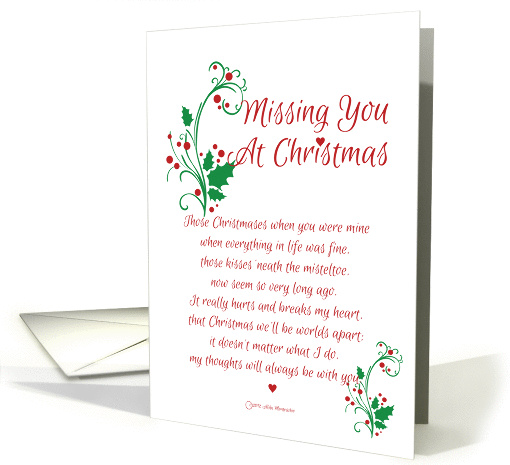 Missing You
At Christmas
Those Christmases when you were mine
when everything in life was fine,
those kisses 'neath the misteltoe,
now seem so very long ago.
It really hurts and breaks my heart,
that Christmas we'll be worlds apart;
it doesn't matter what I do,
my thoughts will always be with you